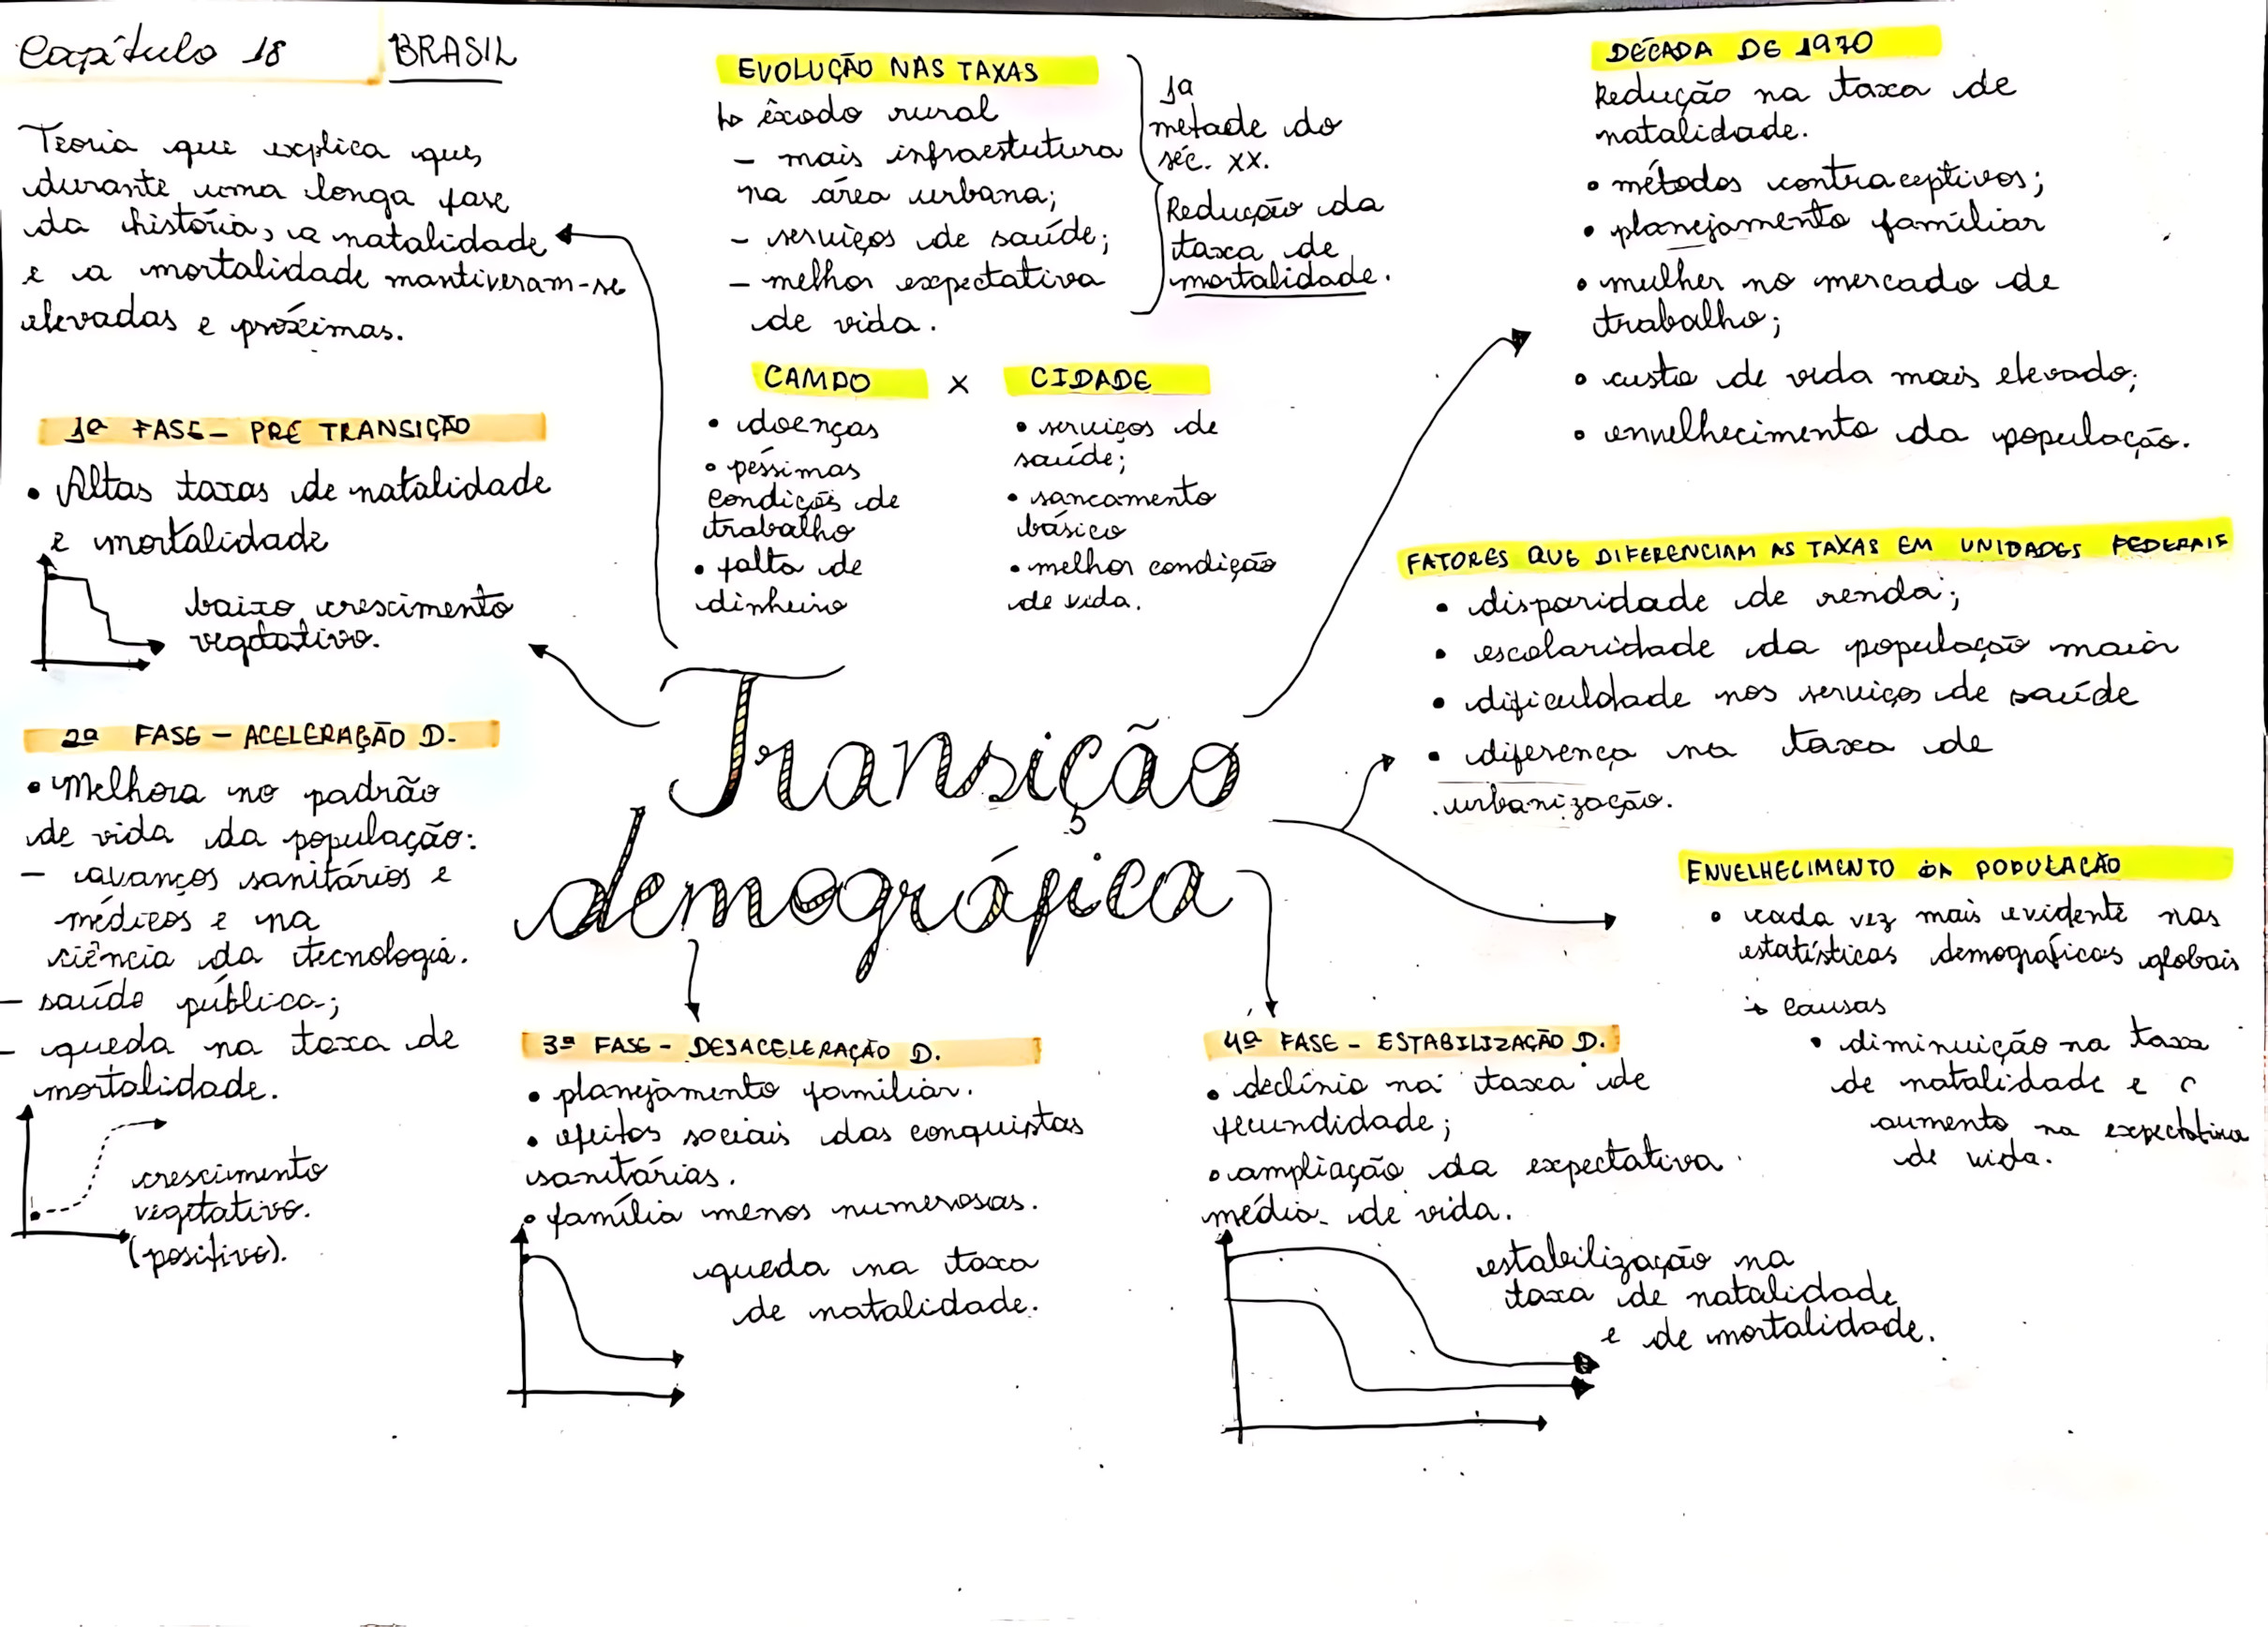 Capítulo 18
BRASIL
Teoria que explica que,
durante uma longa fase
da história, a natalidade
e a mortalidade mantiveram-se
elevadas e próximas.
1ª FASE - PRE TRANSIÇÃO
• Altas taxas de natalidade
e mortalidade
baixo crescimento
vegetativo.
2ª FASE - ACELERAÇÃO D.
• Melhora no padrão
de vida da população:
- avanços sanitários e
médicos e na
ciência da tecnologia.
- saúde pública;
- queda na taxa de
mortalidade.
crescimento
vegetativo.
(positivo).
EVOLUÇÃO NAS TAXAS
↳ êxodo rural
- mais infraestutura
na área urbana;
- serviços de saúde;
- melhor expectativa
de vida.
1ª
metade do
séc. XX.
Redução da
taxa de
mortalidade.
CAMPO X CIDADE
• doenças
• péssimas
condições de
trabalho
• falta de
dinheiro
• serviços de
saúde;
• saneamento
básico
• melhor condição
de vida.
Transição
demográfica
3ª FASE - DESACELERAÇÃO D.
• planejamento familiar.
• efeitos sociais das conquistas
sanitárias.
• família menos numerosas.
queda na taxa
de natalidade.
4ª FASE - ESTABILIZAÇÃO D.
• declínio na taxa de
fecundidade;
• ampliação da expectativa
média de vida.
estabilização na
taxa de natalidade
e de mortalidade.
DÉCADA DE 1970
Redução na taxa de
natalidade.
• métodos contraceptivos;
• planejamento famíliar
• mulher no mercado de
trabalho;
• custo de vida mais elevado;
• envelhecimento da população.
FATORES QUE DIFERENCIAM AS TAXAS EM UNIDADES FEDERAIS
• disparidade de renda;
• escolaridade da população maior
• dificuldade nos serviços de saúde
• diferença na taxa de
urbanização.
ENVELHECIMENTO DA POPULAÇÃO
• cada vez mais evidente nas
estatísticas demográficas globais
→ causas
• diminuição na taxa
de natalidade e o
aumento na expectativa
de vida.